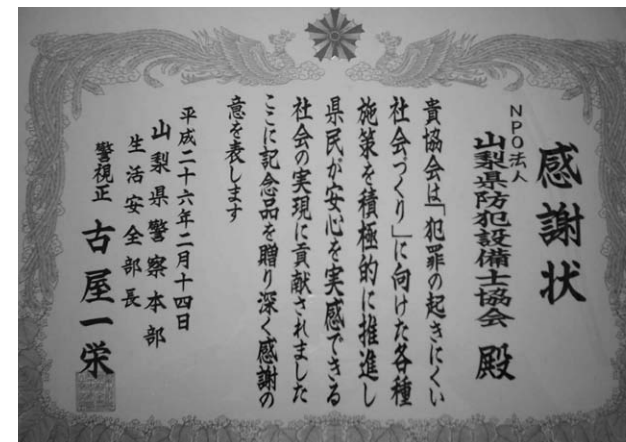 感謝状
NPO法人
山梨県防犯設備士協会 殿
貴協会は「犯罪の起きにくい
社会づくり」に向けた各種
施策を積極的に推進し
県民が安心を実感できる
社会の実現に貢献されました
ここに記念品を贈り深く感謝の
意を表します
平成二十六年二月十四日
山梨県警察本部
生活安全部長
警視正 古屋一栄